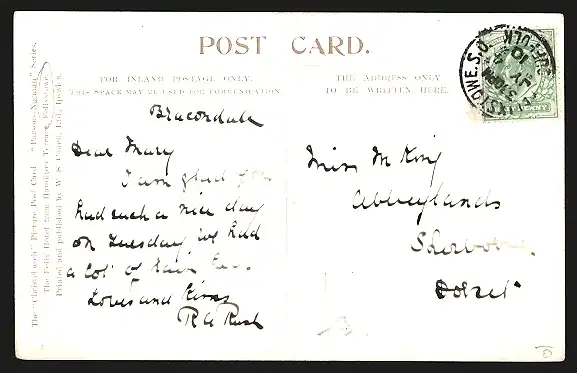 POST CARD.
FOR INLAND POSTAGE ONLY.
THIS SPACE MAY BE USED FOR COMMUNICATION
THE ADDRESS ONLY
TO BE WRITTEN HERE.
Bracondale
Dear Mary
I am glad you
had such a nice day
on Tuesday we had
a lot of rain here
Love and Kisses
R A Rush
Miss M King
Abbeylands
Sherborne
Dorset
FELIXSTOWE.S.O.
SUFFOLK
JY
10
PENNY
Picture Post Card
Series.
The Felix Hotel from Hamilton Terrace, Felixstowe.
Printed and published by W. S. Ltd., Ipswich.